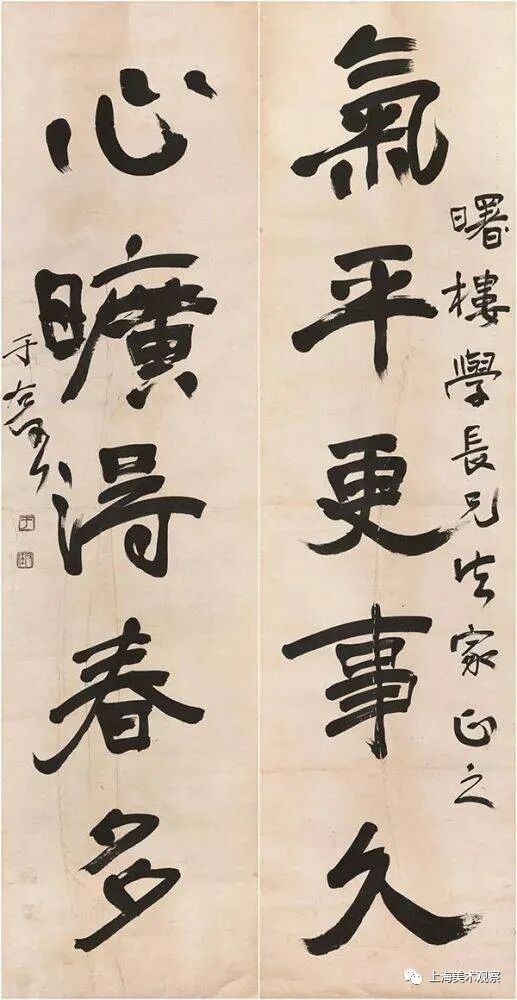 氣平更事久
曙樓學長兄法家正之
心曠淂春多
于右任
上海美术观察